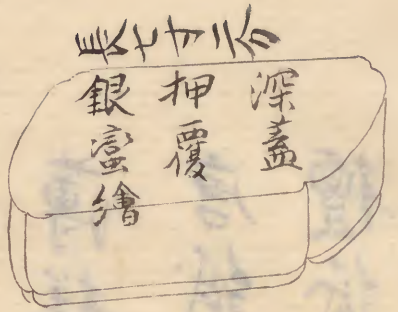 長七寸二分
深蓋
押覆
銀蛮繪